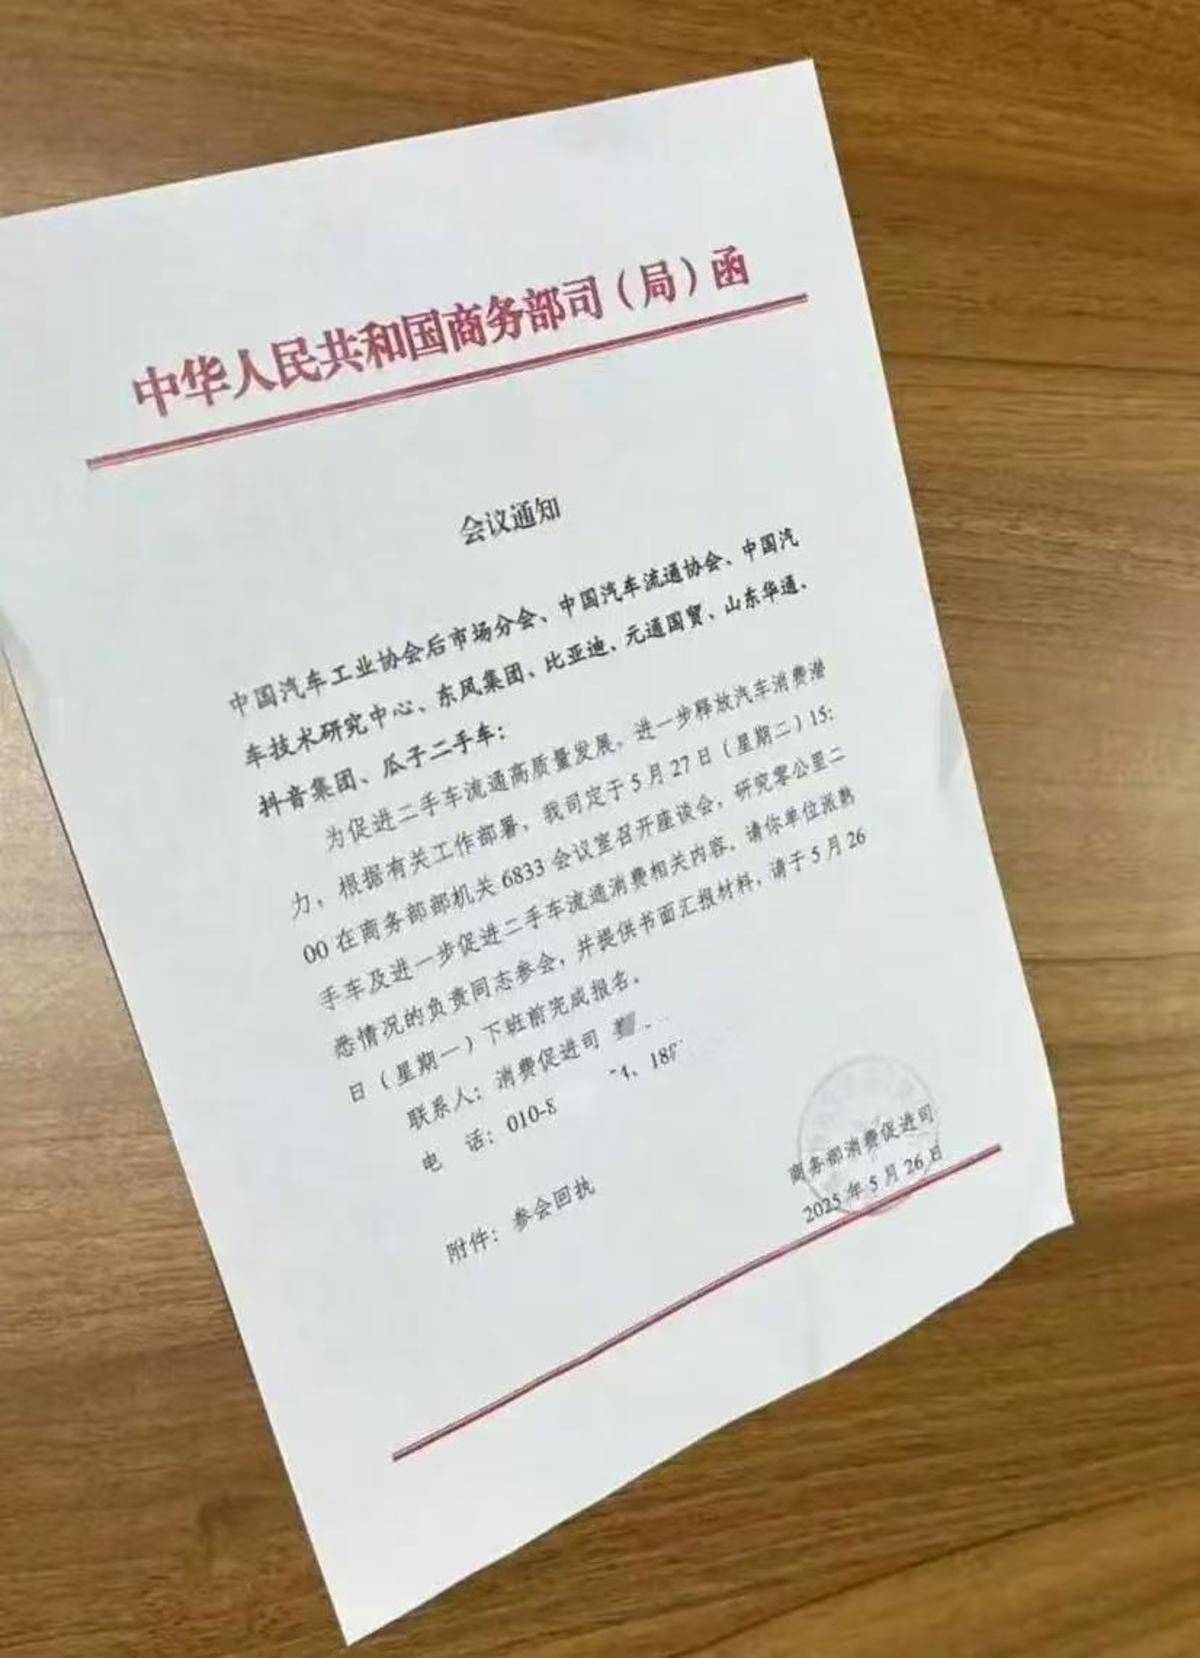 中华人民共和国商务部司（局）函
会议通知
中国汽车工业协会后市场分会、中国汽车流通协会、中国汽
车技术研究中心、东风集团、比亚迪、元通国贸、山东华通、
抖音集团、瓜子二手车：
为促进二手车流通高质量发展，进一步释放汽车消费潜
力，根据有关工作部署，我司定于5月27日（星期二）15:
00在商务部部机关6833会议室召开座谈会，研究零公里二
手车及进一步促进二手车流通消费相关内容。请你单位派熟
悉情况的负责同志参会，并提供书面汇报材料，请于5月26
日（星期一）下班前完成报名。
联系人：消费促进司
电 话：010-8 4、18
附件：参会回执
商务部消费促进司
2025年5月26日